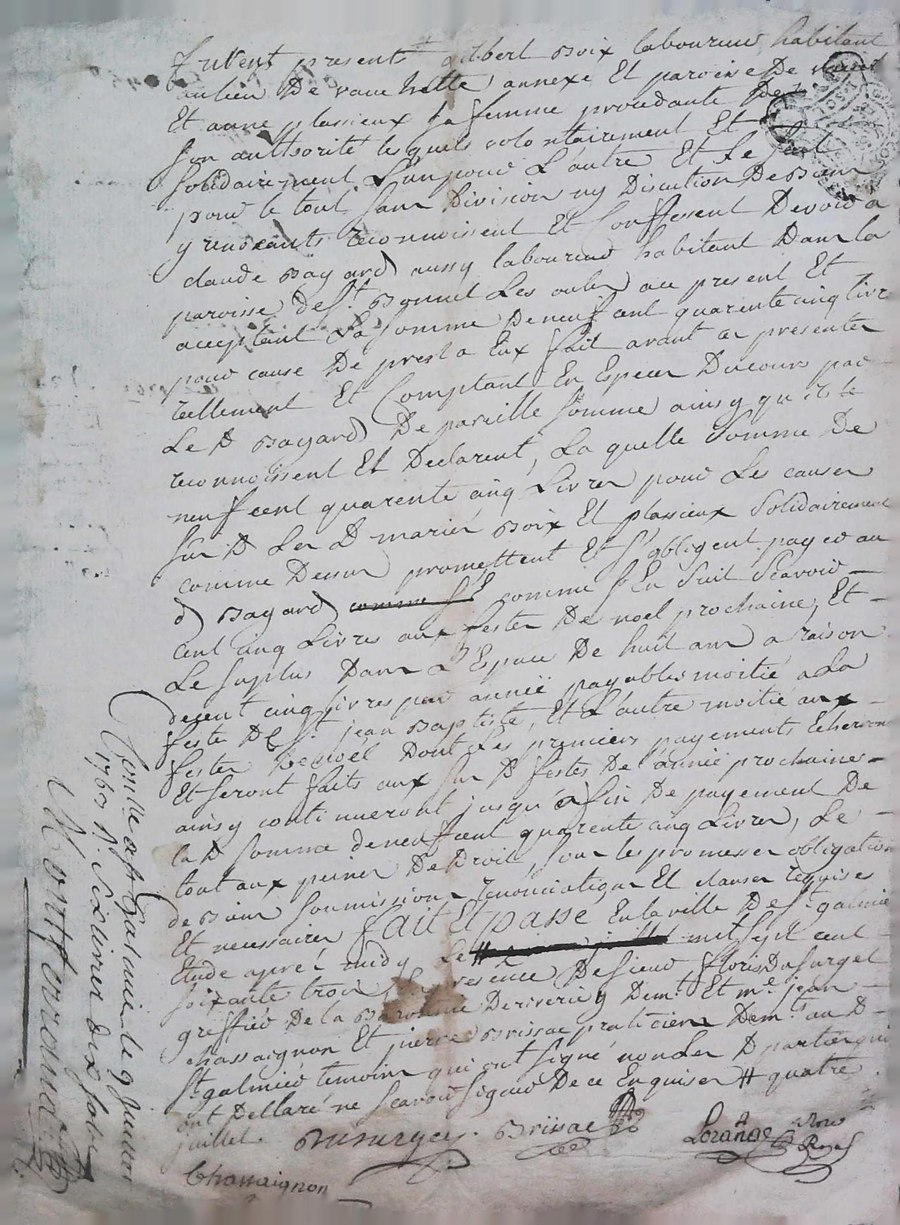 furent presents gilbert Boix laboureur habitant
au lieu De vauchette annexe Et paroisse De
Et anne plassieux sa femme procedante De
son authorité lesquels volontairement Et
solidairement L'un pour L'autre Et Le seul
pour le tout sans Division ny Discution De Biens
y renoncants reconnoissent Et Confessent Devoir a
claude Bayard aussy laboureur habitant Dans la
paroisse de St Bonnet Les oules ace present Et
acceptant La somme De neuf cent quarente cinq livres
pour cause De prest a Eux fait avant ces presentes
reellement Et Comptant En Especes Ducours par
Le d Bayard De pareille somme ainsy qu'ils le
reconnoissent Et Declarent, La quelle somme De
neuf cent quarente cinq Livres pour Les causes
sus d Les d mariés Boix Et plassieux solidairement
comme Dessus promettent Et s'obligent payer au
d Bayard comme s'En suit scavoir
cent cinq Livres aux festes De noel prochaines, Et
Le surplus Dans L'Espace De huit ans a raison
de cent cinq livres par année payables moitié a La
feste De St jean Baptiste, Et L'autre moitié aux
festes de noel Dont Les premiers payements Echerront
Et seront faits aux sus d festes De L'année prochaine
ainsy continueront jusqu'a fin De payement De
la d somme de neuf cent quarente cinq Livres, Le
tout aux peines De Droit, sous les promesses obligation
de Biens soumissions renonciation Et clauses requises
Et necessaires fait Et passé En la ville De St galmier
Etude aprés midy Le mil sept cent
soixante trois En presence De sieur floris Dasurget
greffier De la Baronnie De riverie y Demt Et me jean
chassaignon Et pierre Brissac praticiens Demts au D
St galmier temoins qui ont signé non Les D parties qui
ont Dellaré ne scavoir signer De ce Enquises # quatre
juillet.
Brissac
Lorange
Chassaignon
Conllé a St Galmier le 9 Juillet
1763 Rt six livres dix sols
Montferrand